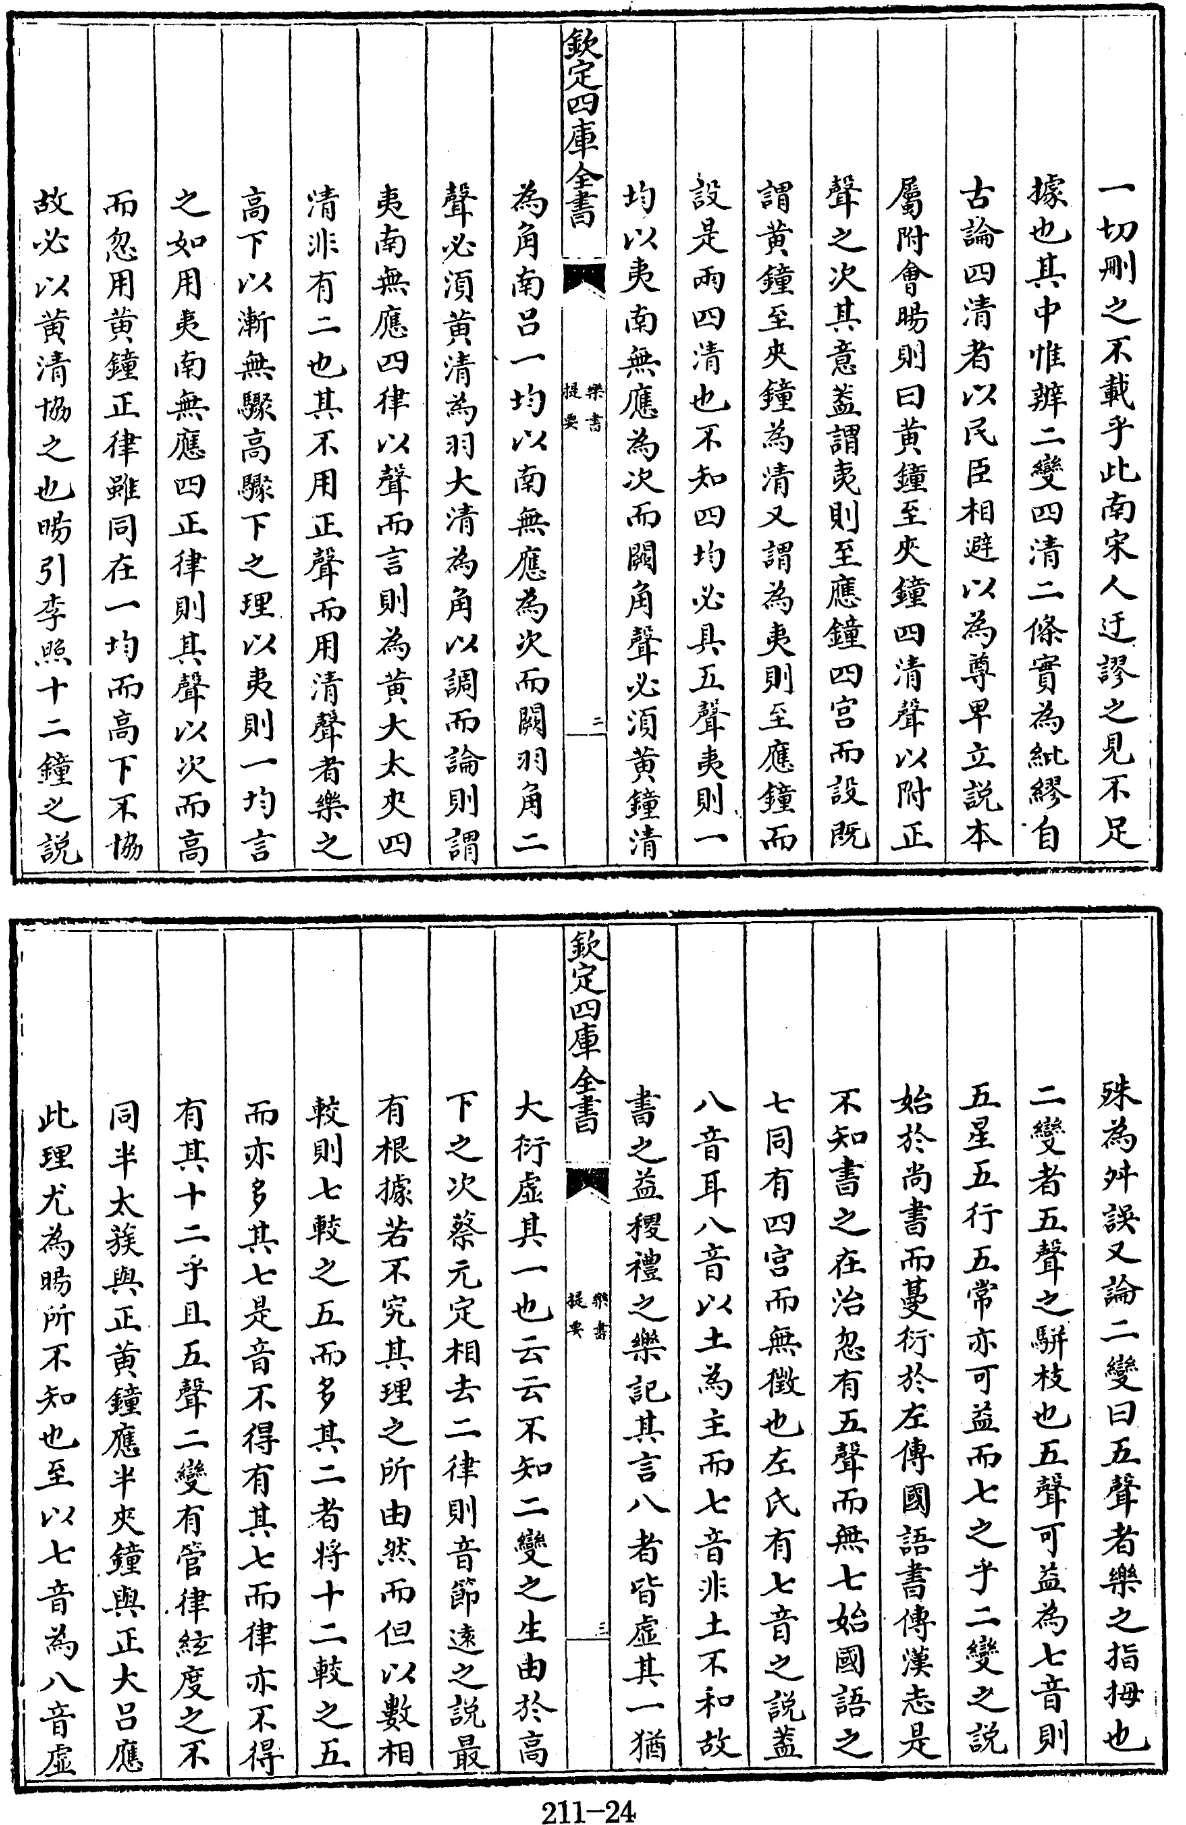 一切刪之不載乎此南宋人迂謬之見不足
據也其中惟辨二變四清二條實為紕繆自
古論四清者以民臣相避以為尊卑立説本
屬附會暘則曰黄鐘至夾鐘四清聲以附正
聲之次其意蓋謂夷則至應鐘四宫而設既
謂黄鐘至夾鐘為清又謂為夷則至應鐘而
設是兩四清也不知四均必具五聲夷則一
均以夷南無應為次而闕角聲必須黄鐘清
欽定四庫全書
樂書
提要
二
為角南呂一均以南無應為次而闕羽角二
聲必須黄清為羽大清為角以調而論則謂
夷南無應四律以聲而言則為黄大太夾四
清非有二也其不用正聲而用清聲者樂之
高下以漸無驟高驟下之理以夷則一均言
之如用夷南無應四正律則其聲以次而高
而忽用黄鐘正律雖同在一均而高下不協
故必以黄清協之也暘引李照十二鐘之説
殊為舛誤又論二變曰五聲者樂之指拇也
二變者五聲之駢枝也五聲可益為七音則
五星五行五常亦可益而七之乎二變之説
始於尚書而蔓衍於左傳國語書傳漢志是
不知書之在治忽有五聲而無七始國語之
七同有四宫而無徴也左氏有七音之説蓋
八音耳八音以土為主而七音非土不和故
書之益稷禮之樂記其言八者皆虚其一猶
欽定四庫全書
樂書
提要
三
大衍虚其一也云云不知二變之生由於高
下之次蔡元定相去二律則音節逺之説最
有根據若不究其理之所由然而但以數相
較則七較之五而多其二者將十二較之五
而亦多其七是音不得有其七而律亦不得
有其十二乎且五聲二變有管律絃度之不
同半太蔟與正黄鐘應半夾鐘與正大呂應
此理尤為暘所不知也至以七音為八音虚
211-24